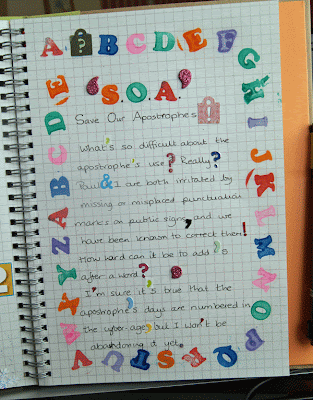 A ? B C D ( E F
G H I J K L M N O P
Q R S T U V
W X Y Z A B C D ( E
'S.O.A.'
Save Our Apostrophes !
What's so difficult about the
apostrophe's use? Really?
Paul & I are both irritated by
missing or misplaced punctuation
marks on public signs, and we
have been known to correct them!
How hard can it be to add 's
after a word?
I'm sure it's true that the
apostrophe's days are numbered in
the cyber-age, but I won't be
abandoning it yet.